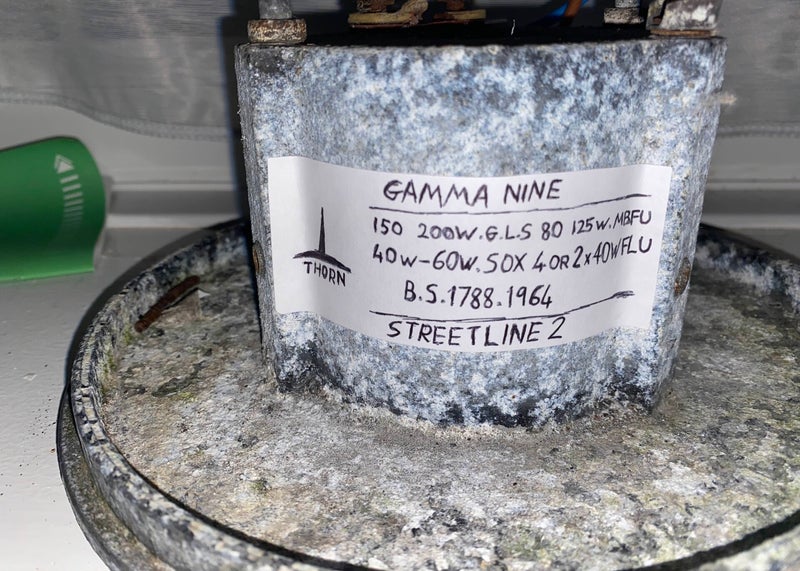 GAMMA NINE
150 200W.G.L.S 80 125W.MBFU
40W-60W.SOX 4 OR 2x40W FLU
THORN
B.S.1788.1964
STREETLINE 2